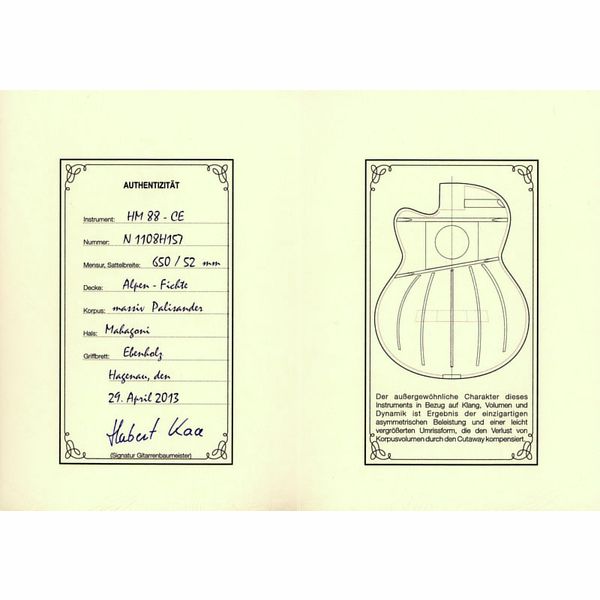 AUTHENTIZITÄT
Instrument: HM 88 - CE
Nummer: N 1108H157
Mensur, Sattelbreite: 650 / 52 mm
Decke: Alpen - Fichte
Korpus: massiv Palisander
Hals: Mahagoni
Griffbrett: Ebenholz
Hagenau, den
29. April 2013
(Signatur Gitarrenbaumeister)
Der außergewöhnliche Charakter dieses
Instruments in Bezug auf Klang, Volumen und
Dynamik ist Ergebnis der einzigartigen
asymmetrischen Beleistung und einer leicht
vergrößerten Umrissform, die den Verlust von
Korpusvolumen durch den Cutaway kompensiert.